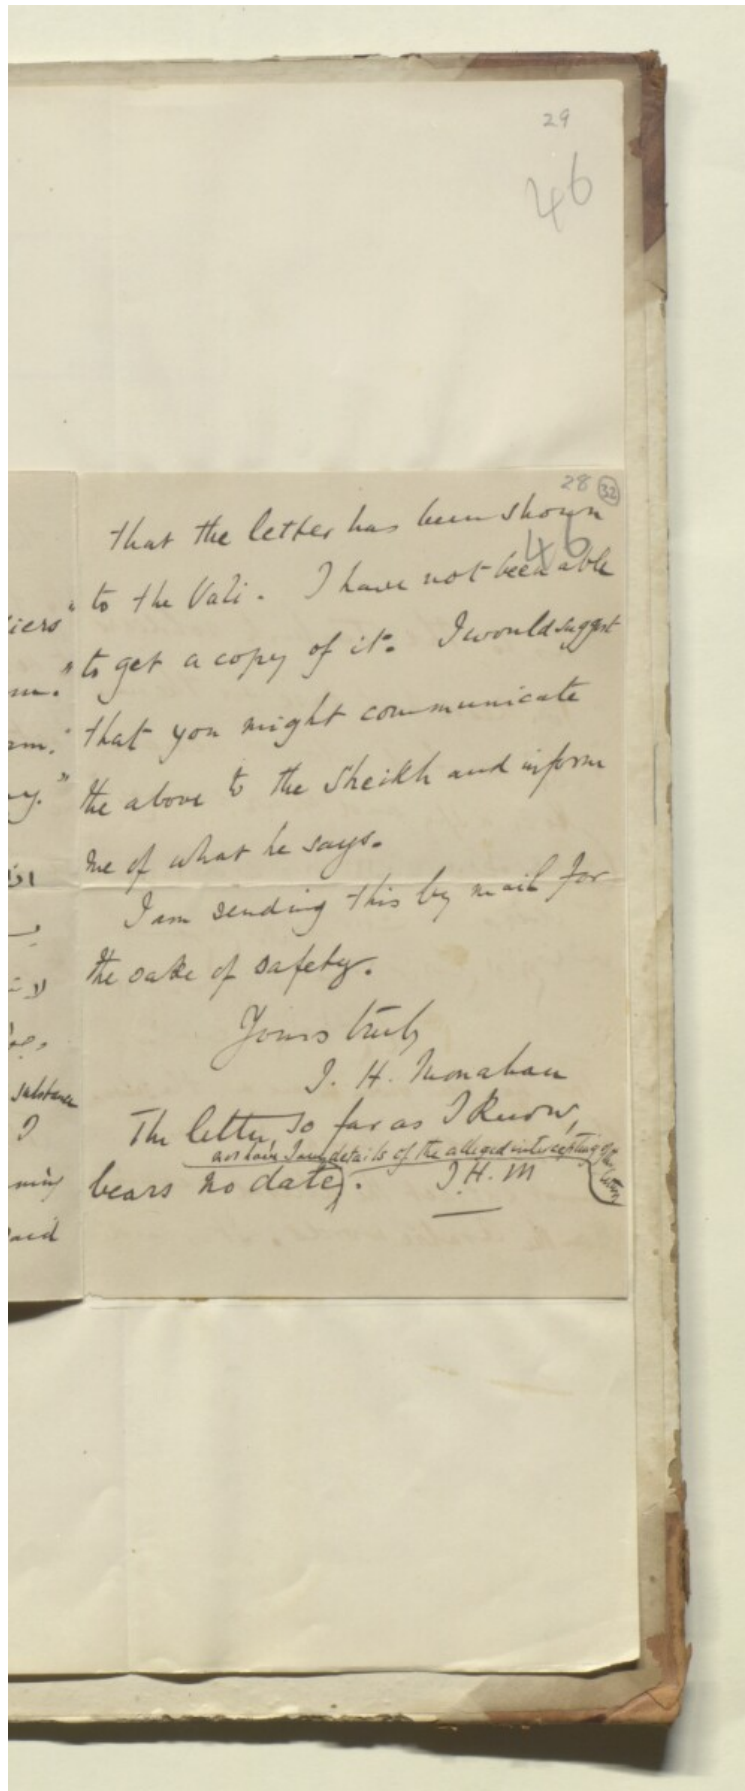 29
46
28
32
46
that the letter has been shown
to the Vali. I have not been able
to get a copy of it. I would suggest
that you might communicate
the above to the Sheikh and inform
me of what he says.
I am sending this by mail for
the sake of safety.
Yours truly
J. H. Monahan
The letter, so far as I know,
details of the alleged intercepting of the letter
bears no date. J.H.M
iers"
m."
am."
y."
substance
I
ming
said